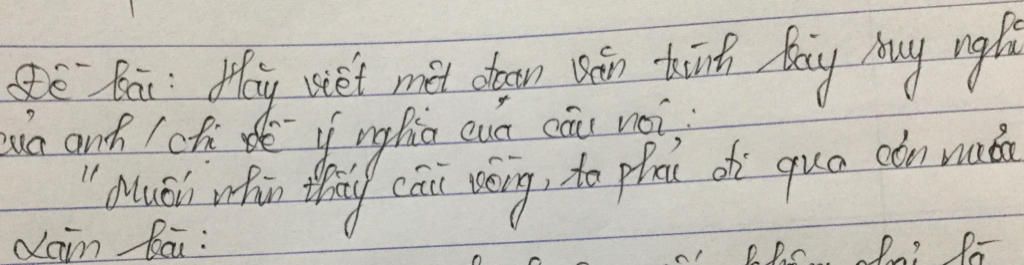 Đề bài: Hãy viết một đoạn văn trình bày suy nghĩ
của anh / chị về ý nghĩa của câu nói:
"Muốn nhìn thấy cầu vồng, ta phải đi qua cơn mưa
Làm bài: